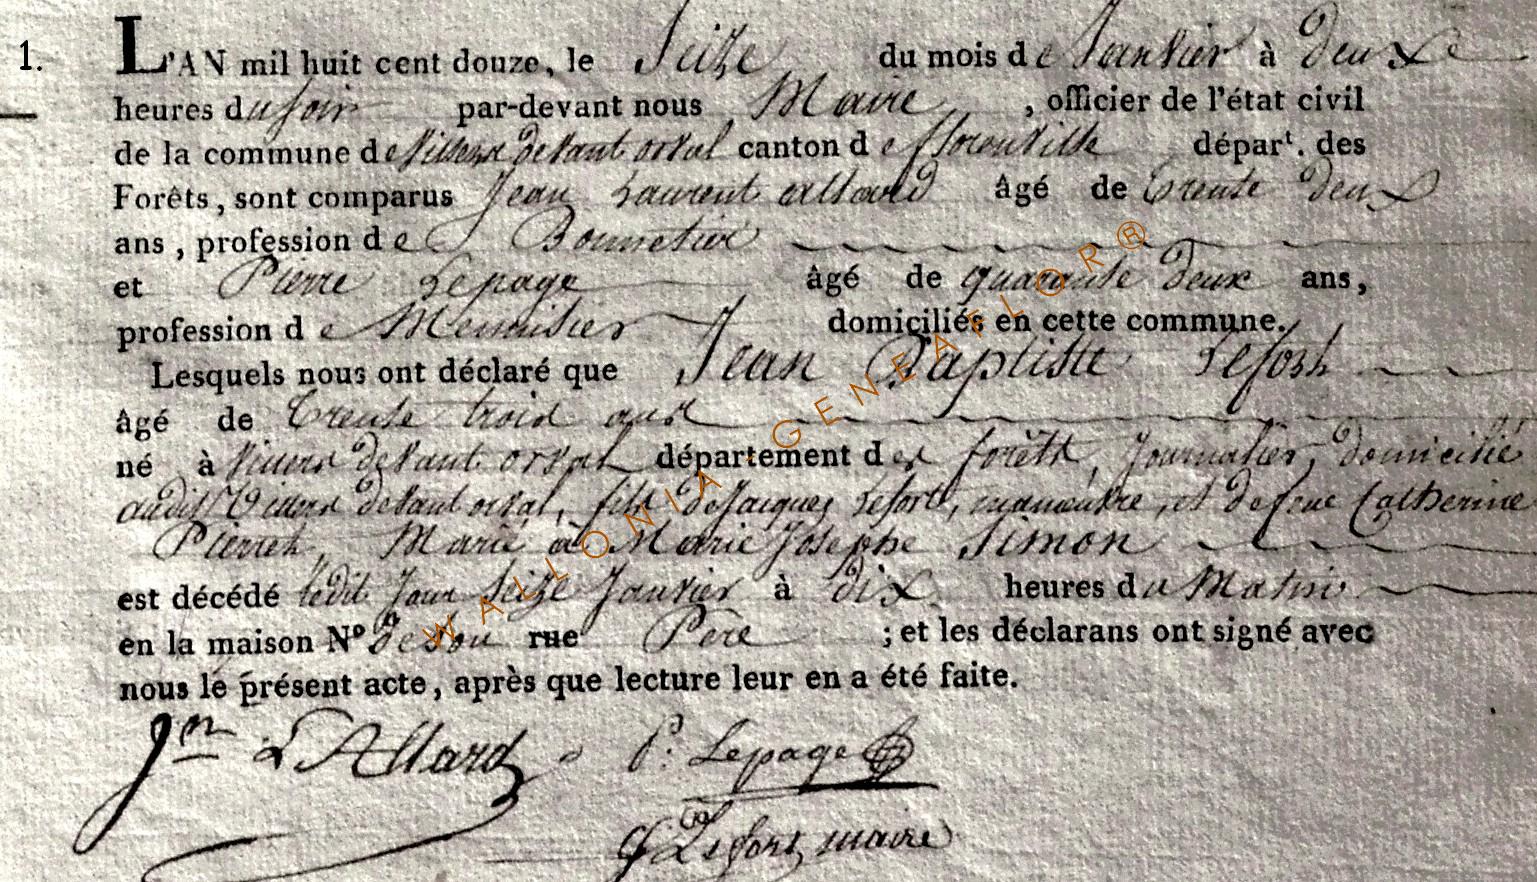 1.
L'AN mil huit cent douze, le Seize du mois de Janvier à deux
heures du soir par-devant nous Maire, officier de l'état civil
de la commune de villers devant orval canton de florenville départ. des
Forêts, sont comparus Jean Laurent allard âgé de trente deux
ans, profession de Bonnetier
et Pierre Lepage âgé de quarante deux ans,
profession de Menuisier domiciliés en cette commune.
Lesquels nous ont déclaré que Jean Baptiste Lefort
âgé de trente trois ans
né à villers devant orval département des forêts, Journalier, domicilié
audit Villers devant orval, fils de Jacques Lefort, manœuvre, et de feue Catherine
Marié à Marie Josephe Simon
est décédé ledit jour seize Janvier à dix heures du Matin
en la maison N° de son rue Père ; et les déclarans ont signé avec
nous le présent acte, après que lecture leur en a été faite.
Jn L Allard P. Lepage
Lefort maire
WALLONIA-GENEAFLOR®